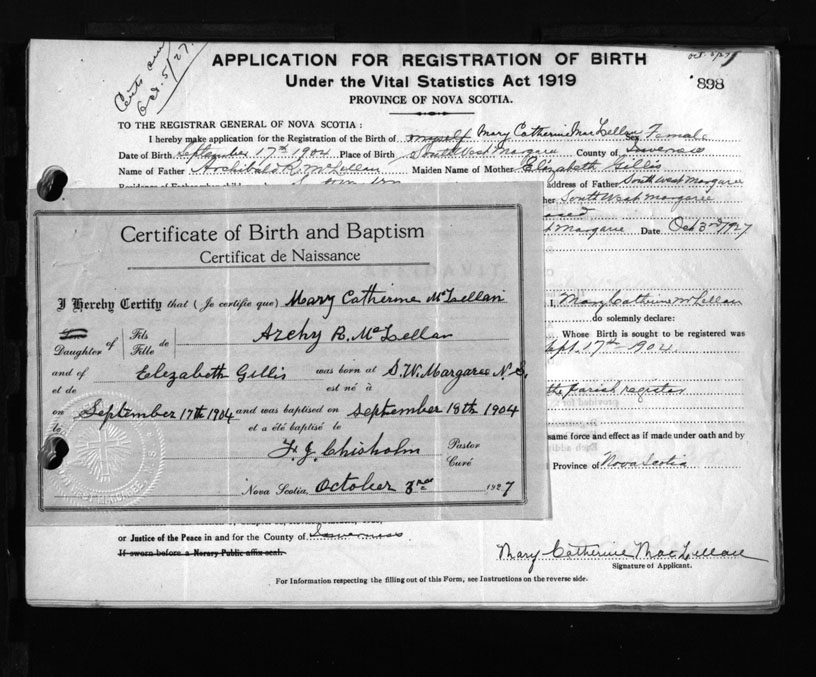 Certs
Oct. 5/27
Oct. 5/27
APPLICATION FOR REGISTRATION OF BIRTH
898
Under the Vital Statistics Act 1919
PROVINCE OF NOVA SCOTIA.
TO THE REGISTRAR GENERAL OF NOVA SCOTIA:
I hereby make application for the Registration of the Birth of myself Mary Catherine MacLellan Sex Female
Date of Birth September 17th 1904 Place of Birth South West Margaree County of Inverness
Name of Father Archibald R. McLellan Maiden Name of Mother Elizabeth Gillis
address of Father South West Margaree
her South West Margaree
Margaree Date Oct 3rd 1927
Certificate of Birth and Baptism
Certificat de Naissance
I Hereby Certify that (Je certifie que) Mary Catherine McLellan
Son
Daughter of
Fils
Fille
de Archy R. McLellan
and of Elizabeth Gillis was born at S.W. Margaree N.S.
et de est né à
on September 17th 1904 and was baptised on September 18th 1904
et a été baptisé le
F. J. Chisholm Pastor
Curé
Nova Scotia, October 3rd 1927
I, Mary Catherine McLellan
do solemnly declare:
Whose Birth is sought to be registered was
Sept. 17th 1904.
the parish register
same force and effect as if made under oath and by
Province of Nova Scotia
or Justice of the Peace in and for the County of Inverness
If sworn before a Notary Public affix seal.
Mary Catherine MacLellan
Signature of Applicant.
For Information respecting the filling out of this Form, see Instructions on the reverse side.